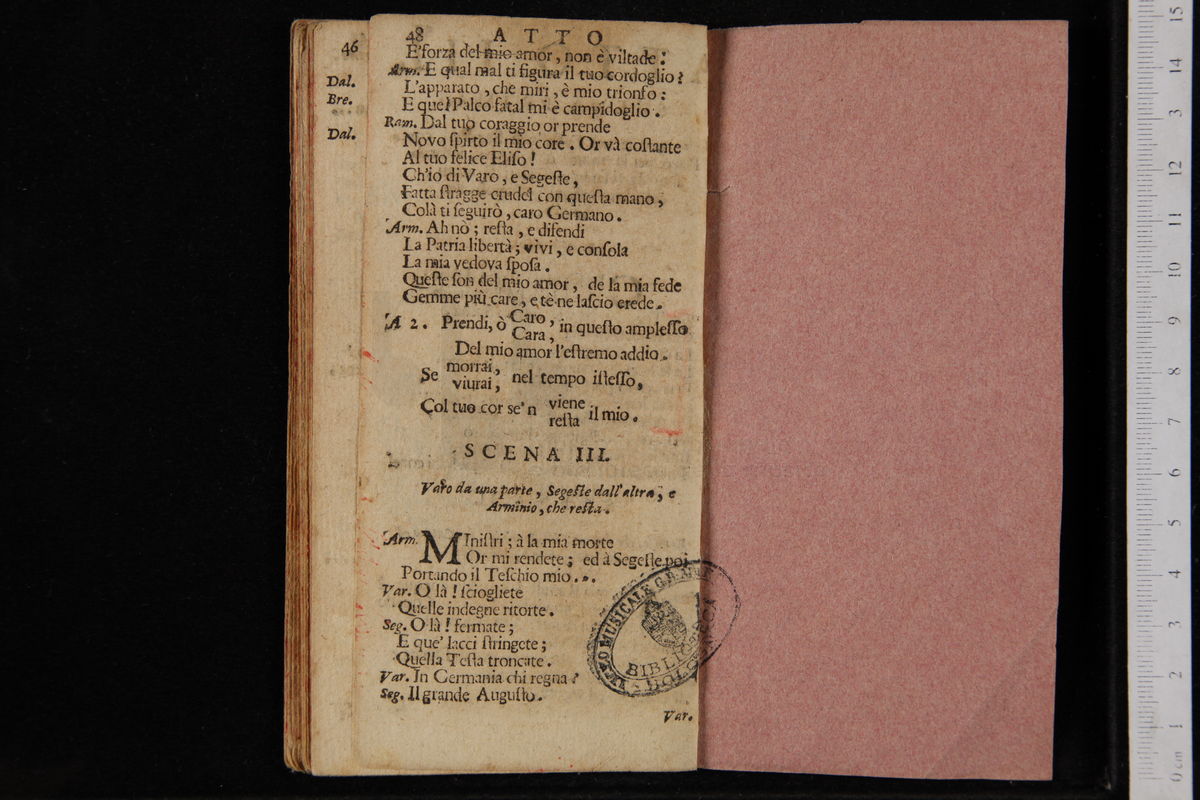 46
Dal.
Bre.
Dal.
48 ATTO
E'forza del mio amor, non è viltade:
Arm. E qual mal ti figura il tuo cordoglio?
L'apparato, che miri, è mio trionfo:
E quel Palco fatal mi è campidoglio.
Ram. Dal tuo coraggio or prende
Novo ſpirto il mio core. Or và coſtante
Al tuo felice Eliſo!
Ch'io di Varo, e Segeſte,
Fatta ſtragge crudel con queſta mano,
Colà ti ſeguirò, caro Germano.
Arm. Ah nò; reſta, e difendi
La Patria libertà; vivi, e conſola
La mia vedova ſpoſa.
Queſte ſon del mio amor, de la mia fede
Gemme più care, e tè ne laſcio erede.
A 2. Prendi, ò Caro, Cara, in queſto ampleſſo
Del mio amor l'eſtremo addio.
Se morrai, viurai, nel tempo iſteſſo,
Col tuo cor se'n viene reſta il mio.
SCENA III.
Varo da una parte, Segeſte dall'altra, e
Arminio, che reſta.
Arm. MIniſtri; à la mia morte
Or mi rendete; ed à Segeſte poi
Portando il Teſchio mio...
Var. O là! ſciogliete
Quelle indegne ritorte.
Seg. O là! fermate;
E que' lacci ſtringete;
Quella Teſta troncate.
Var. In Germania chi regna?
Seg. Il grande Auguſto.
Var.
MUSICALE
BIBLIOTECA
0 cm 1 2 3 4 5 6 7 8 9 10 11 12 13 14 15